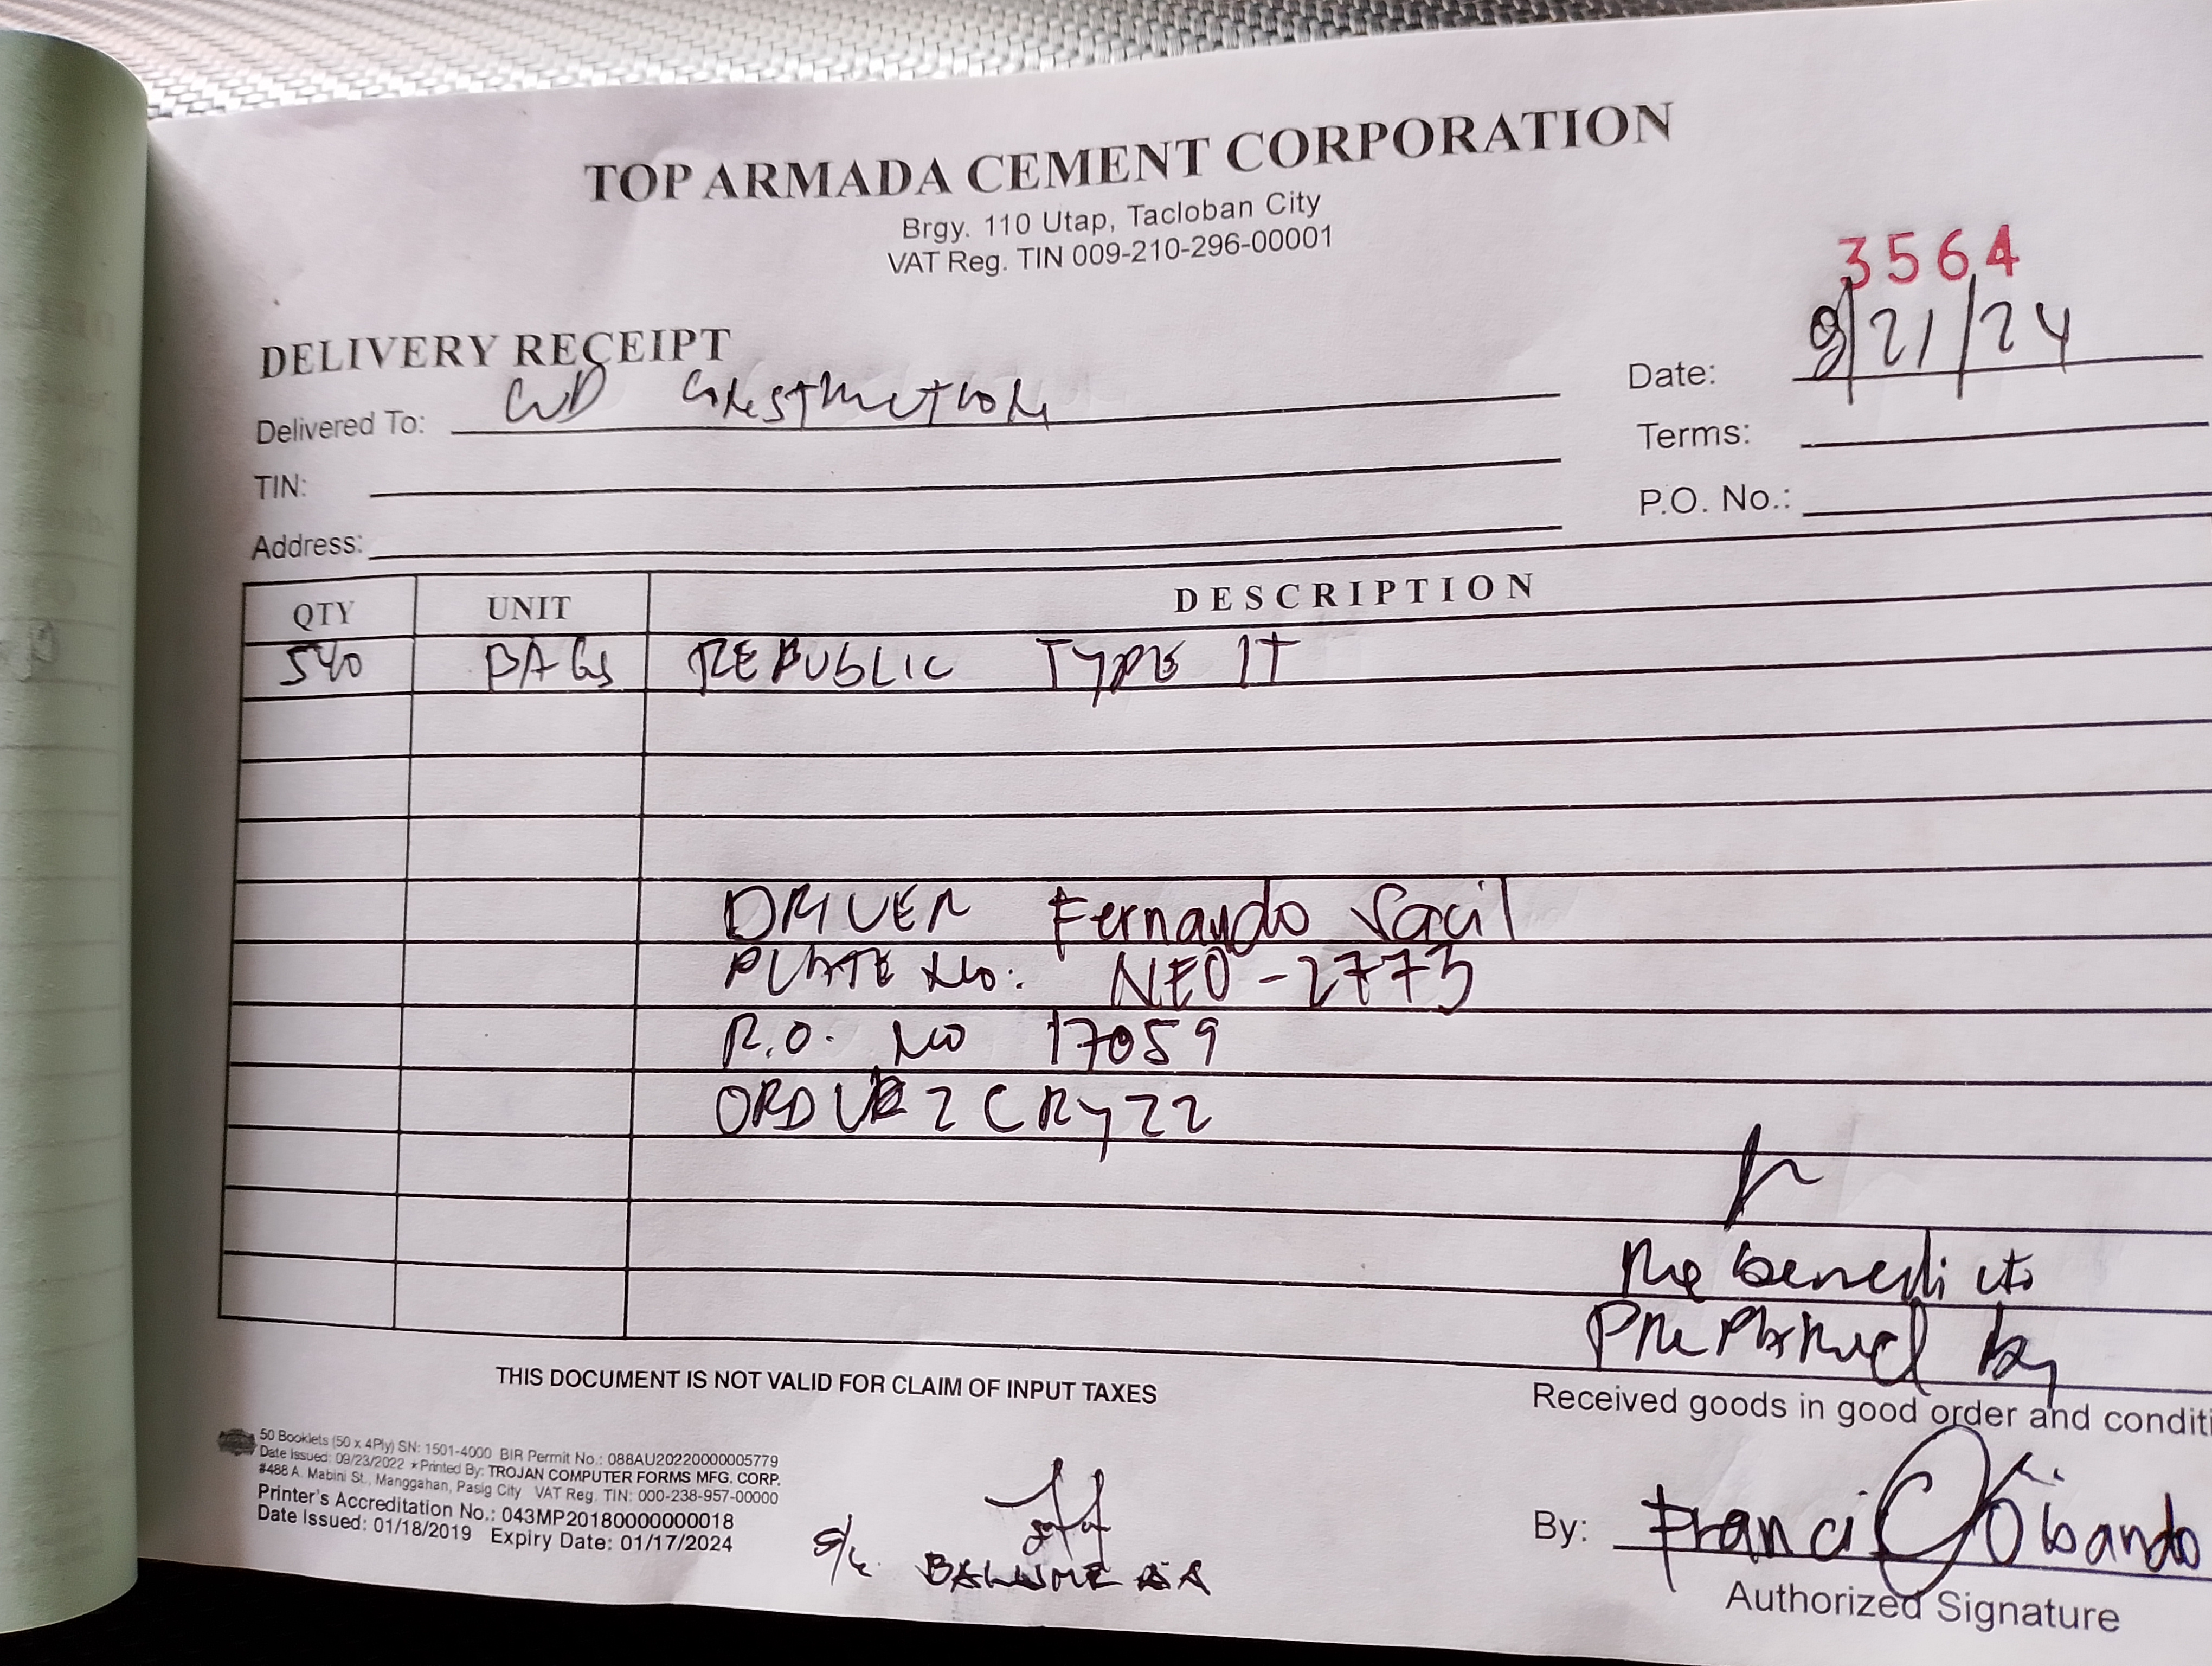 TOP ARMADA CEMENT CORPORATION
Brgy. 110 Utap, Tacloban City
VAT Reg. TIN 009-210-296-00001
3564
DELIVERY RECEIPT
Date: 9/21/24
Delivered To: Construction
Terms:
TIN:
P.O. No.:
Address:
QTY UNIT DESCRIPTION
540 BAGS REPUBLIC TYPE 1T
DRIVER Fernando Sacil
PLATE No: NEO-2773
R.O. No 17059
Prepared by
THIS DOCUMENT IS NOT VALID FOR CLAIM OF INPUT TAXES
Received goods in good order and conditi
50 Booklets (50 x 4Ply) SN: 1501-4000 BIR Permit No.: 088AU20220000005779
Date Issued: 09/23/2022 ★Printed By: TROJAN COMPUTER FORMS MFG. CORP.
#488 A. Mabini St., Manggahan, Pasig City VAT Reg. TIN: 000-238-957-00000
Printer's Accreditation No.: 043MP20180000000018
Date Issued: 01/18/2019 Expiry Date: 01/17/2024
By: Franci Obando
Authorized Signature